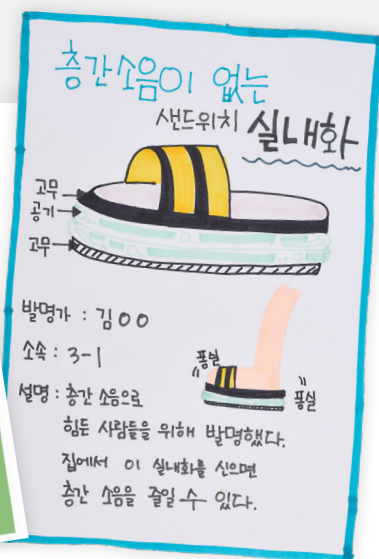 층간소음이 없는
샌드위치 실내화
고무
공기
고무
발명가 : 김○○
소속 : 3-1
설명 : 층간 소음으로
힘든 사람들을 위해 발명했다.
집에서 이 실내화를 신으면
층간 소음을 줄일 수 있다.
퐁실
퐁실